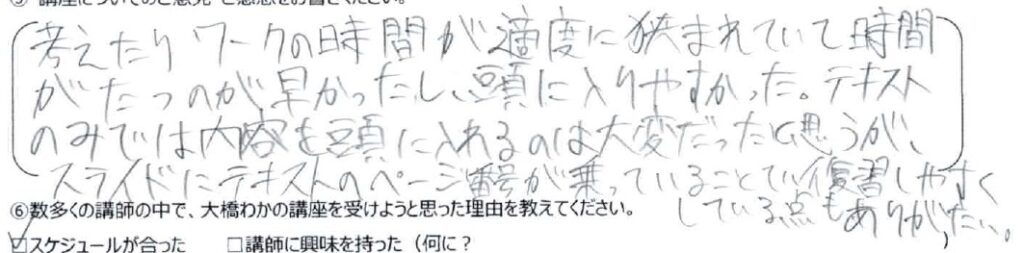 ⑤ 講座についてのご意見・ご感想をお書きください。
考えたり ワークの時間が適度に狭まれていて時間
がたつのが早かったし、頭に入りやすかった。テキスト
のみでは内容を頭に入れるのは大変だったと思うが、
スライドにテキストのページ番号が乗っていることで復習しやすく
している点もありがたい。
⑥数多くの講師の中で、大橋わかの講座を受けようと思った理由を教えてください。
☑スケジュールが合った □講師に興味を持った（何に？ ）